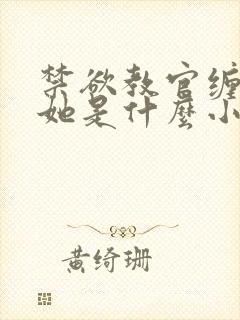 禁欲教官缠
她是什麼小
黄绮珊